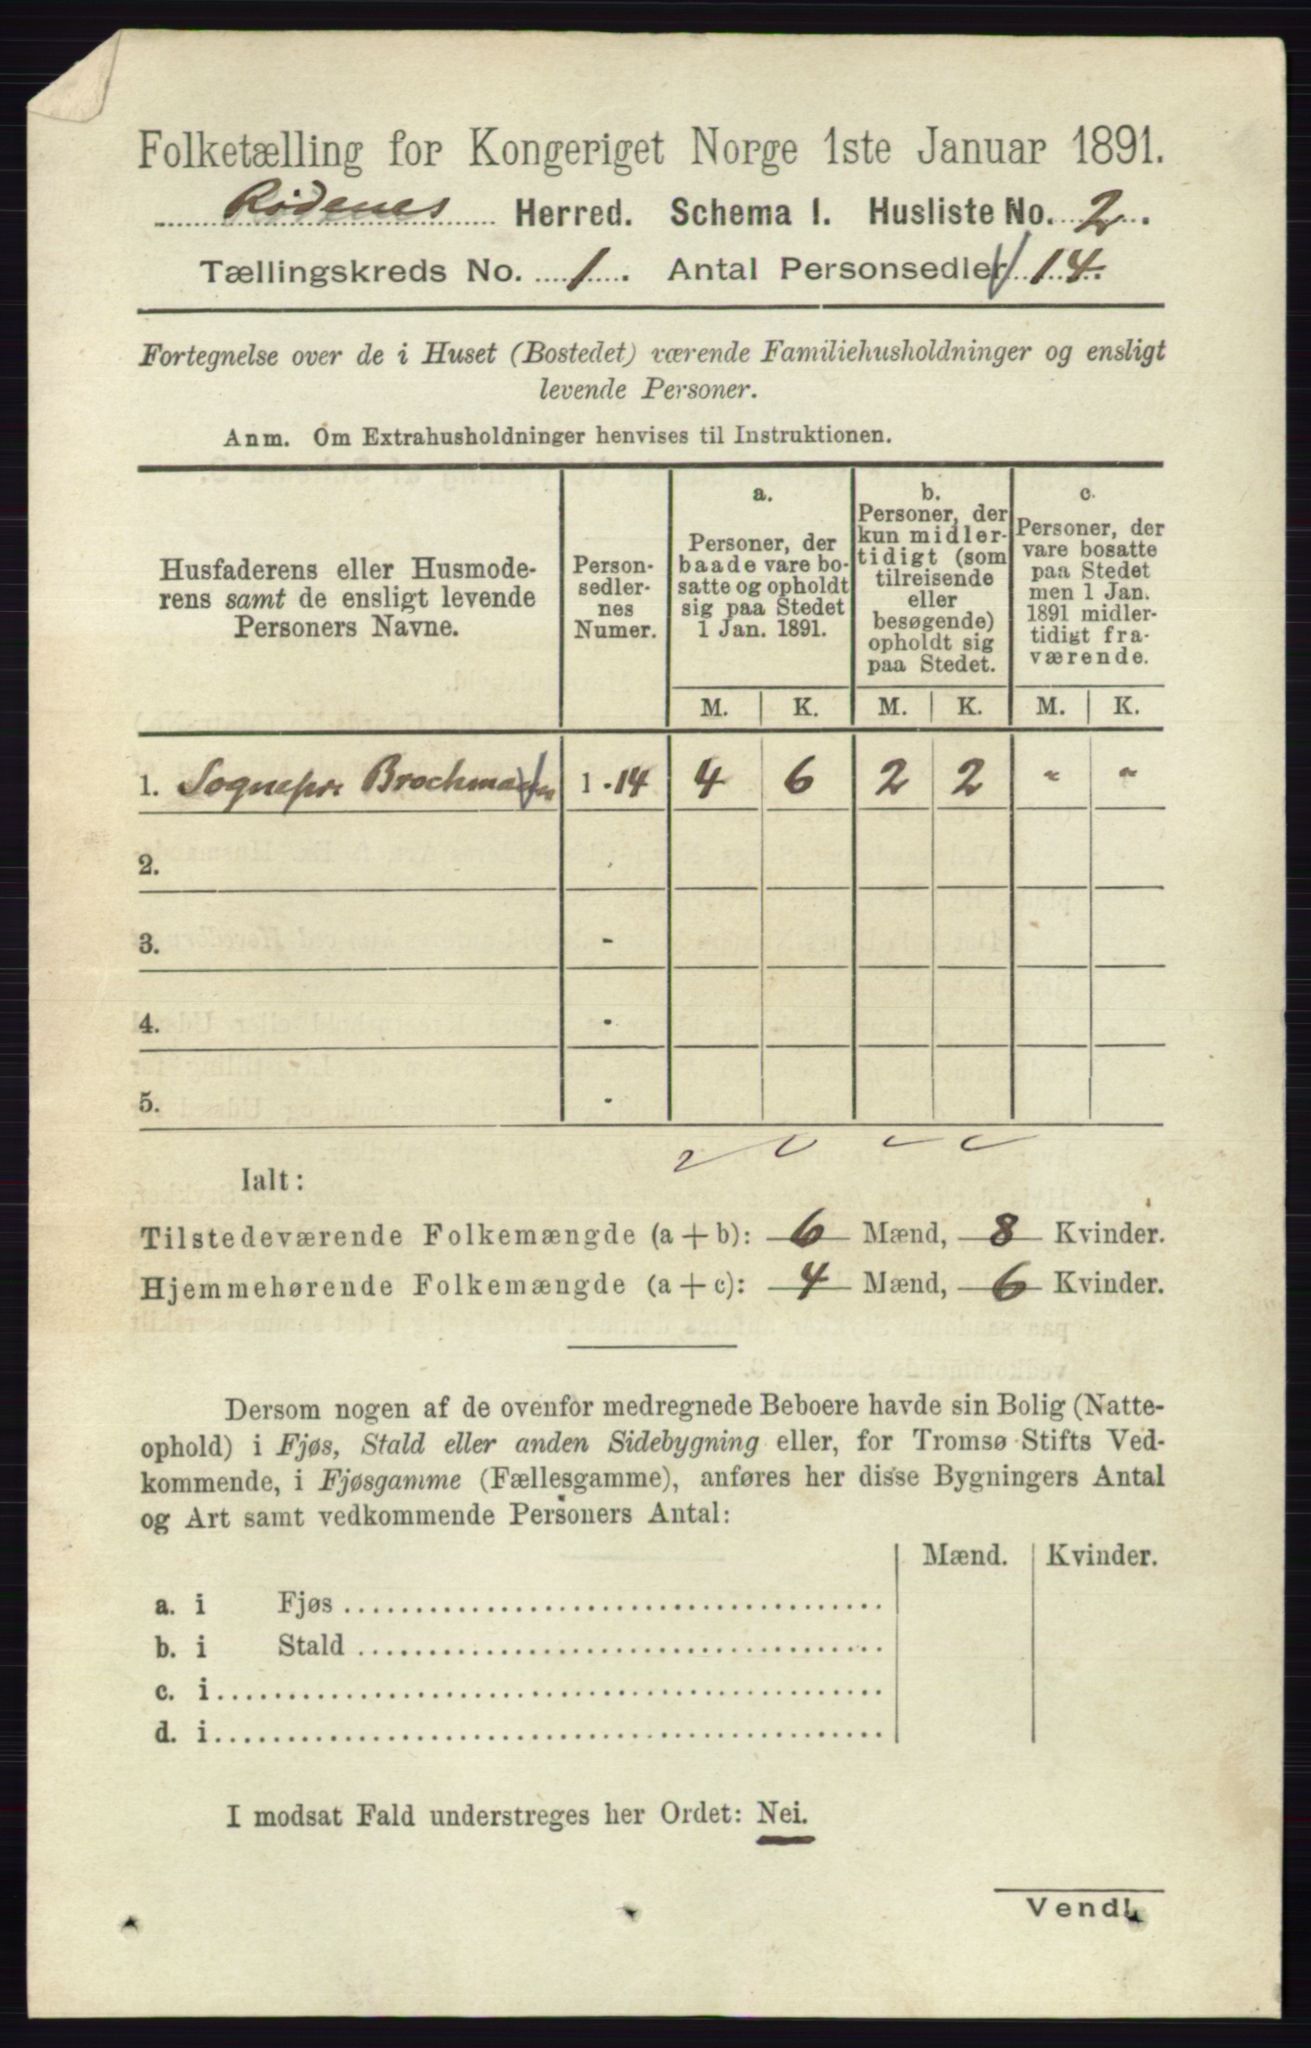 Folketælling for Kongeriget Norge 1ste Januar 1891.
Rødenes Herred. Schema I. Husliste No. 2.
Tællingskreds No. 1. Antal Personsedler 14.
Fortegnelse over de i Huset (Bostedet) værende Familiehusholdninger og ensligt
levende Personer.
Anm. Om Extrahusholdninger henvises til Instruktionen.
Husfaderens eller Husmode-
rens samt de ensligt levende
Personers Navne.
Person-
sedler-
nes
Numer.
a.
Personer, der
baade vare bo-
satte og opholdt
sig paa Stedet
1 Jan. 1891.
b.
Personer, der
kun midler-
tidigt (som
tilreisende
eller
besøgende)
opholdt sig
paa Stedet.
c.
Personer, der
vare bosatte
paa Stedet
men 1 Jan.
1891 midler-
tidigt fra-
værende.
M. K. M. K. M. K.
1. Sognepr. Brochmann 1 - 14 4 6 2 2 " "
2.
3. -
4. -
5. -
Ialt:
Tilstedeværende Folkemængde (a + b): 6 Mænd, 8 Kvinder.
Hjemmehørende Folkemængde (a + c): 4 Mænd, 6 Kvinder.
Dersom nogen af de ovenfor medregnede Beboere havde sin Bolig (Natte-
ophold) i Fjøs, Stald eller anden Sidebygning eller, for Tromsø Stifts Ved-
kommende, i Fjøsgamme (Fællesgamme), anføres her disse Bygningers Antal
og Art samt vedkommende Personers Antal:
Mænd. Kvinder.
a. i Fjøs
b. i Stald
c. i
d. i
I modsat Fald understreges her Ordet: Nei.
Vend!